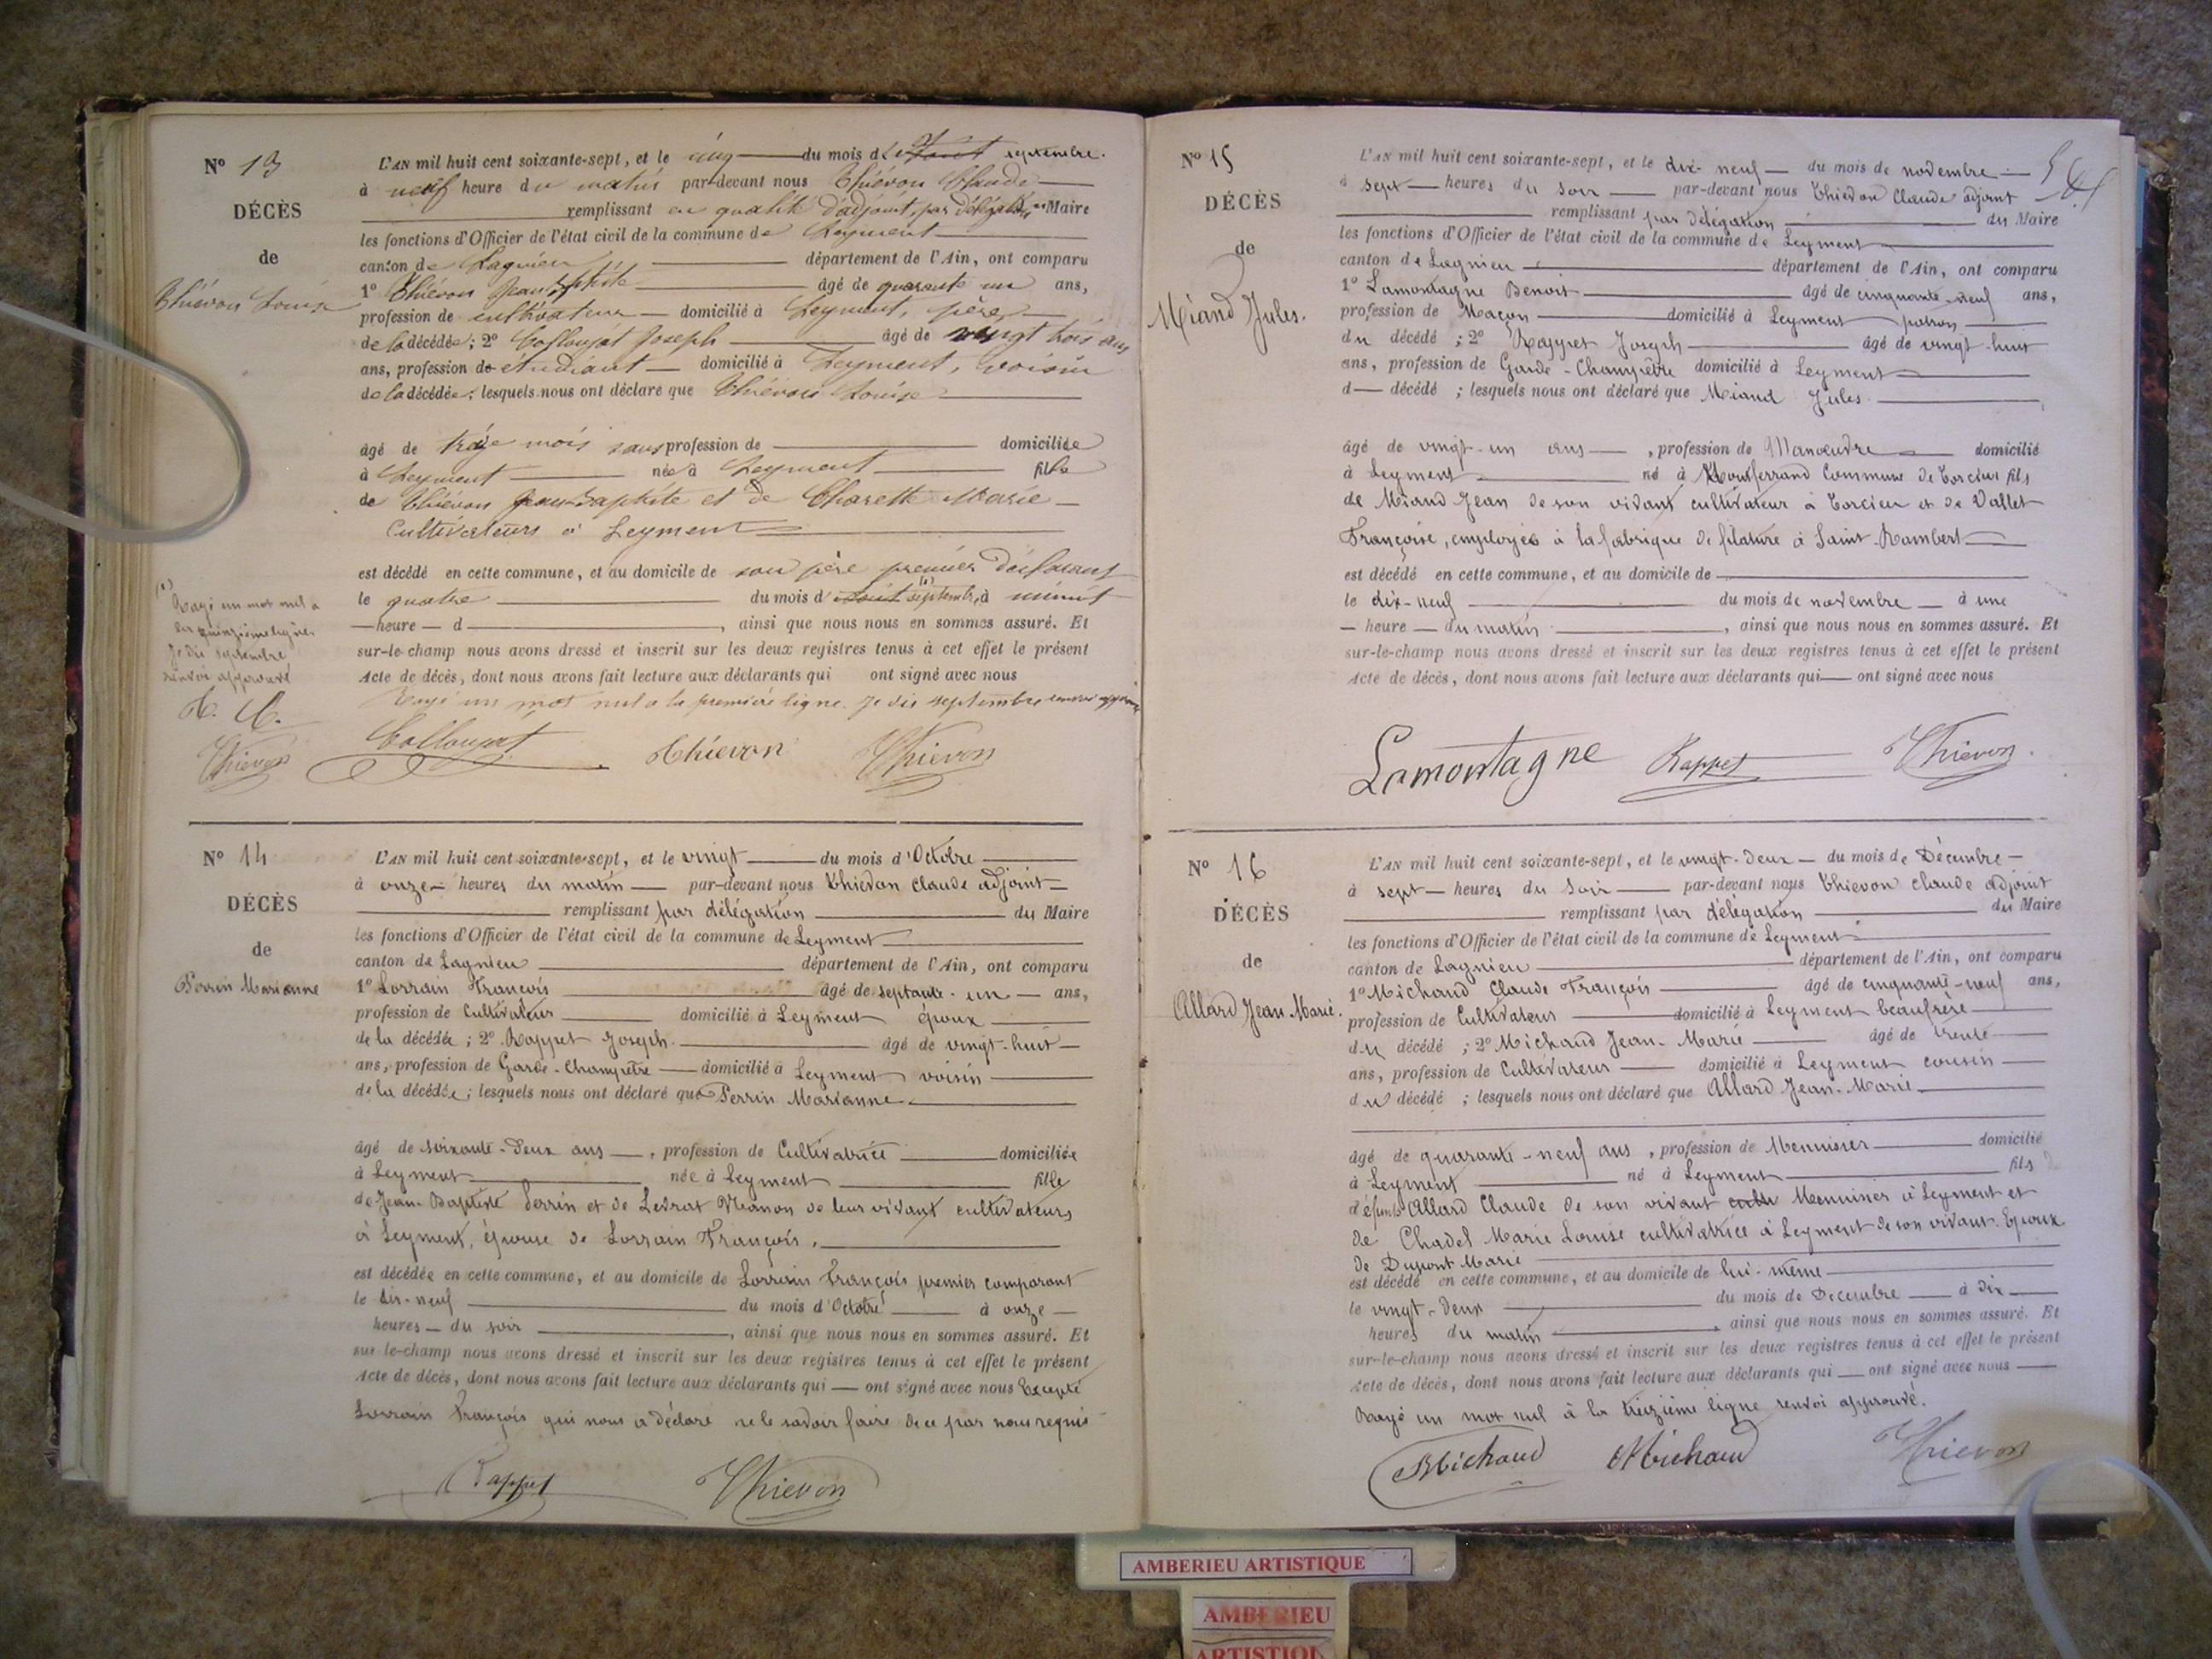 N° 13
DÉCÈS
de
Thiévon Louise
L'AN mil huit cent soixante-sept, et le cinq du mois de septembre.
à neuf heure du matin par-devant nous Thiévon Claude
remplissant en qualité d'adjoint, par délégation Maire
les fonctions d'Officier de l'état civil de la commune de Leyment
canton de Lagnieu département de l'Ain, ont comparu
1° Thiévon Jean Baptiste âgé de quarante un ans,
profession de cultivateur domicilié à Leyment, père
de la décédée; 2° Collougat Joseph âgé de vingt trois ans
ans, profession de étudiant domicilié à Leyment, voisin
de la décédée; lesquels nous ont déclaré que Thiévon Louise
âgé de mois sans profession de domicilié
à Leyment née à Leyment fille
de Thiévon Jean-Baptiste et de Charette Marie
Cultivateurs à Leyment
est décédé en cette commune, et au domicile de son père premier déclarant
le quatre du mois d août (1) septembre, à minuit
heure d , ainsi que nous nous en sommes assuré. Et
sur-le-champ nous avons dressé et inscrit sur les deux registres tenus à cet effet le présent
Acte de décès, dont nous avons fait lecture aux déclarants qui ont signé avec nous
Rayé un mot nul a la première ligne. Je dis septembre renvoi
(1)
Rayé un mot nul a
la quinzième ligne.
Je dis septembre
renvoi approuvé
T. C.
Thievon
Collougat Thievon Thievon
N° 14
DÉCÈS
de
Perrin Marianne
L'AN mil huit cent soixante-sept, et le vingt du mois d'Octobre
à onze heures du matin par-devant nous Thievon Claude adjoint
remplissant par délégation du Maire
les fonctions d'Officier de l'état civil de la commune de Leyment
canton de Lagnieu département de l'Ain, ont comparu
1° Lorrain François âgé de septante-un ans,
profession de Cultivateur domicilié à Leyment époux
de la décédée; 2° Rappet Joseph. âgé de vingt-huit
ans, profession de Garde-Champêtre domicilié à Leyment voisin
de la décédée; lesquels nous ont déclaré que Perrin Marianne
âgé de soixante-deux ans, profession de Cultivatrice domiciliée
à Leyment née à Leyment fille
de Jean-Baptiste Perrin et de Levrat Manon de leur vivant cultivateurs
à Leyment, épouse de Lorrain François.
est décédée en cette commune, et au domicile de Lorrain François premier comparant
le dix-neuf du mois d'Octobre à onze
heures du soir , ainsi que nous nous en sommes assuré. Et
sur-le-champ nous avons dressé et inscrit sur les deux registres tenus à cet effet le présent
Acte de décès, dont nous avons fait lecture aux déclarants qui ont signé avec nous Excepté
Lorrain François qui nous a déclaré ne le savoir faire de ce par nous requis
Rappet Thievon
N° 15
DÉCÈS
de
Miand Jules.
L'AN mil huit cent soixante-sept, et le dix-neuf du mois de novembre
à sept heures du soir par-devant nous Thievon Claude adjoint
remplissant par délégation du Maire
les fonctions d'Officier de l'état civil de la commune de Leyment
canton de Lagnieu département de l'Ain, ont comparu
1° Lamontagne Benoit âgé de cinquante-neuf ans,
profession de Maçon domicilié à Leyment patron
du décédé; 2° Rappet Joseph âgé de vingt-huit
ans, profession de Garde-Champêtre domicilié à Leyment
d décédé; lesquels nous ont déclaré que Miand Jules.
âgé de vingt-un ans, profession de Manoeuvre domicilié
à Leyment né à Montferrand Commune de Torcieu fils
de Miand Jean de son vivant cultivateur à Torcieu et de Vallet
Françoise, employée à la fabrique de filature à Saint-Rambert
est décédé en cette commune, et au domicile de
le dix-neuf du mois de novembre à une
heure du matin , ainsi que nous nous en sommes assuré. Et
sur-le-champ nous avons dressé et inscrit sur les deux registres tenus à cet effet le présent
Acte de décès, dont nous avons fait lecture aux déclarants qui ont signé avec nous
Lamontagne Rappet Thievon
N° 16
DÉCÈS
de
Allard Jean-Marie.
L'AN mil huit cent soixante-sept, et le vingt-deux du mois de Décembre
à sept heures du soir par-devant nous Thievon Claude adjoint
remplissant par délégation du Maire
les fonctions d'Officier de l'état civil de la commune de Leyment
canton de Lagnieu département de l'Ain, ont comparu
1° Michaud Claude François âgé de cinquante-neuf ans,
profession de Cultivateur domicilié à Leyment beaufrère
du décédé; 2° Michaud Jean-Marie âgé de trente
ans, profession de Cultivateur domicilié à Leyment cousin
du décédé; lesquels nous ont déclaré que Allard Jean-Marie
âgé de quarante-neuf ans, profession de Menuisier domicilié
à Leyment né à Leyment fils
défunt Allard Claude de son vivant Menuisier à Leyment et
de Chadel Marie Louise cultivatrice à Leyment de son vivant. Epoux
de Dupont Marie
est décédé en cette commune, et au domicile de lui-même
le vingt-deux du mois de Decembre à dix
heures du matin , ainsi que nous nous en sommes assuré. Et
sur-le-champ nous avons dressé et inscrit sur les deux registres tenus à cet effet le présent
Acte de décès, dont nous avons fait lecture aux déclarants qui ont signé avec nous
Rayé un mot nul à la treizième ligne renvoi approuvé.
Michaud Michaud Thievon
AMBERIEU ARTISTIQUE
AMBERIEU
ARTISTIQUE